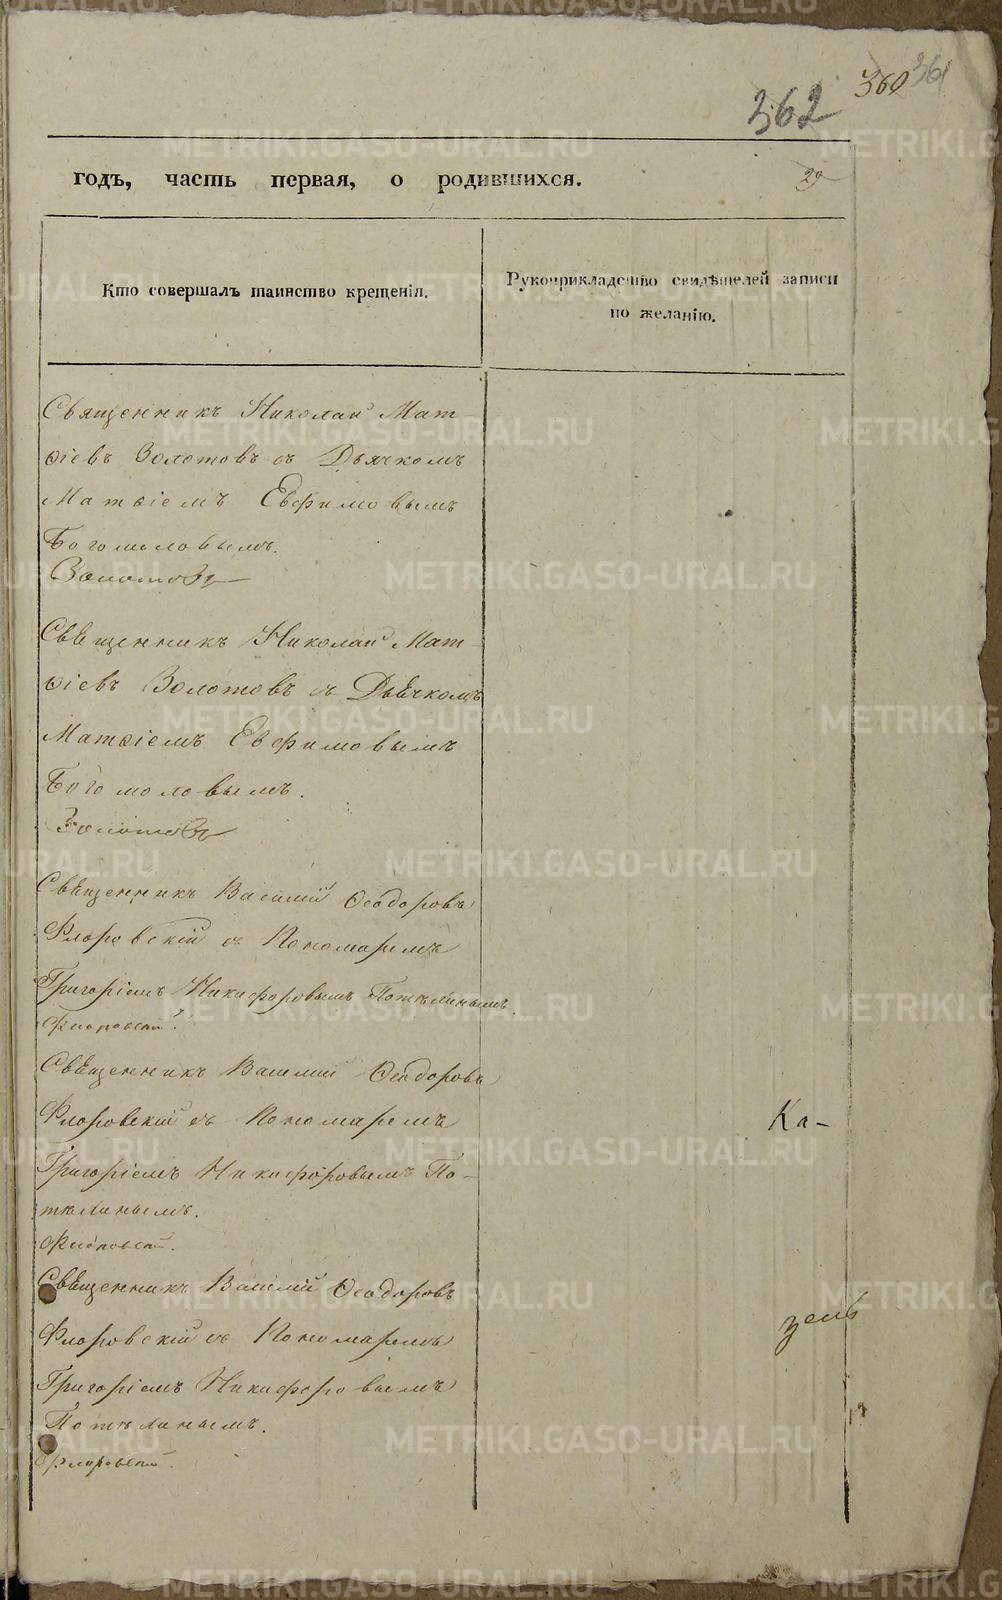 362 360 361
годъ, часть первая, о родившихся.
29
Кто совершалъ таинство крещенія.
Рукоприкладство свидѣтелей записи
по желанію.
Священникъ Николай Мат-
ѳіевъ Золотовъ съ Дьячкомъ
Матѳіемъ Евфимовымъ
Богомоловымъ.
Золотовъ
Свѣщенникъ Николай Мат-
ѳіевъ Золотовъ съ Дьѣчкомъ
Матѳіемъ Евфимовымъ
Богомоловымъ.
Золотовъ
Свѣщенникъ Василий Ѳеодоровъ
Флоровскій съ Пономаремъ
Григоріемъ Никифоровымъ Потѣлинымъ.
Флоровскій.
Свѣщенникъ Василий Ѳеодоровъ
Флоровскій съ Пономаремъ
Ка-
Григоріемъ Никифоровымъ По-
тѣлинымъ.
Флоровскій.
Свѣщенникъ Василий Ѳеодоровъ
Флоровскій съ Пономаремъ
зень
Григоріемъ Никифоровымъ
Потѣлинымъ.
Флоровскій.
METRIKI.GASO-URAL.RU